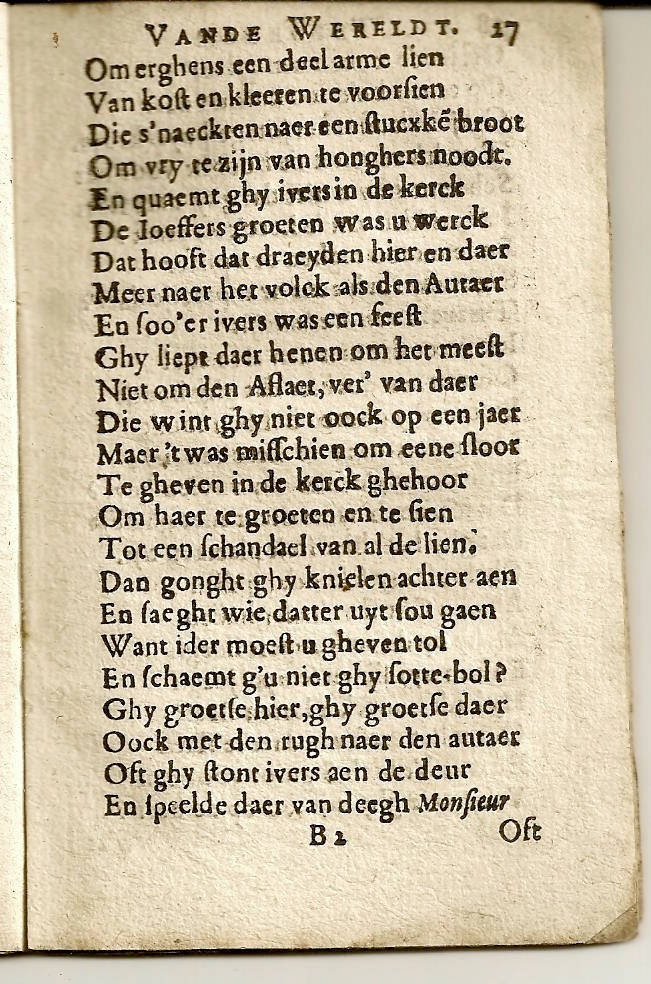 VANDE WERELDT. 27
Om erghens een deel arme lien
Van kost en kleeren te voorsien
Die s'naeckten naer een stucxkē broot
Om vry te zijn van honghers noodt.
En quaemt ghy ivers in de kerck
De Joeffers groeten was u werck
Dat hooft dat draeyden hier en daer
Meer naer het volck als den Autaer
En soo'er ivers was een feest
Ghy liept daer henen om het meest
Niet om den Aflaet, ver' van daer
Die wint ghy niet oock op een jaer
Maer 't was misschien om eene sloor
Te gheven in de kerck ghehoor
Om haer te groeten en te sien
Tot een schandael van al de lien.
Dan gonght ghy knielen achter aen
En saeght wie datter uyt sou gaen
Want ider moest u gheven tol
En schaemt g'u niet ghy sotte-bol?
Ghy groetse hier, ghy groetse daer
Oock met den rugh naer den autaer
Oft ghy stont ivers aen de deur
En speelde daer van deegh Monsieur
B 2 Oft